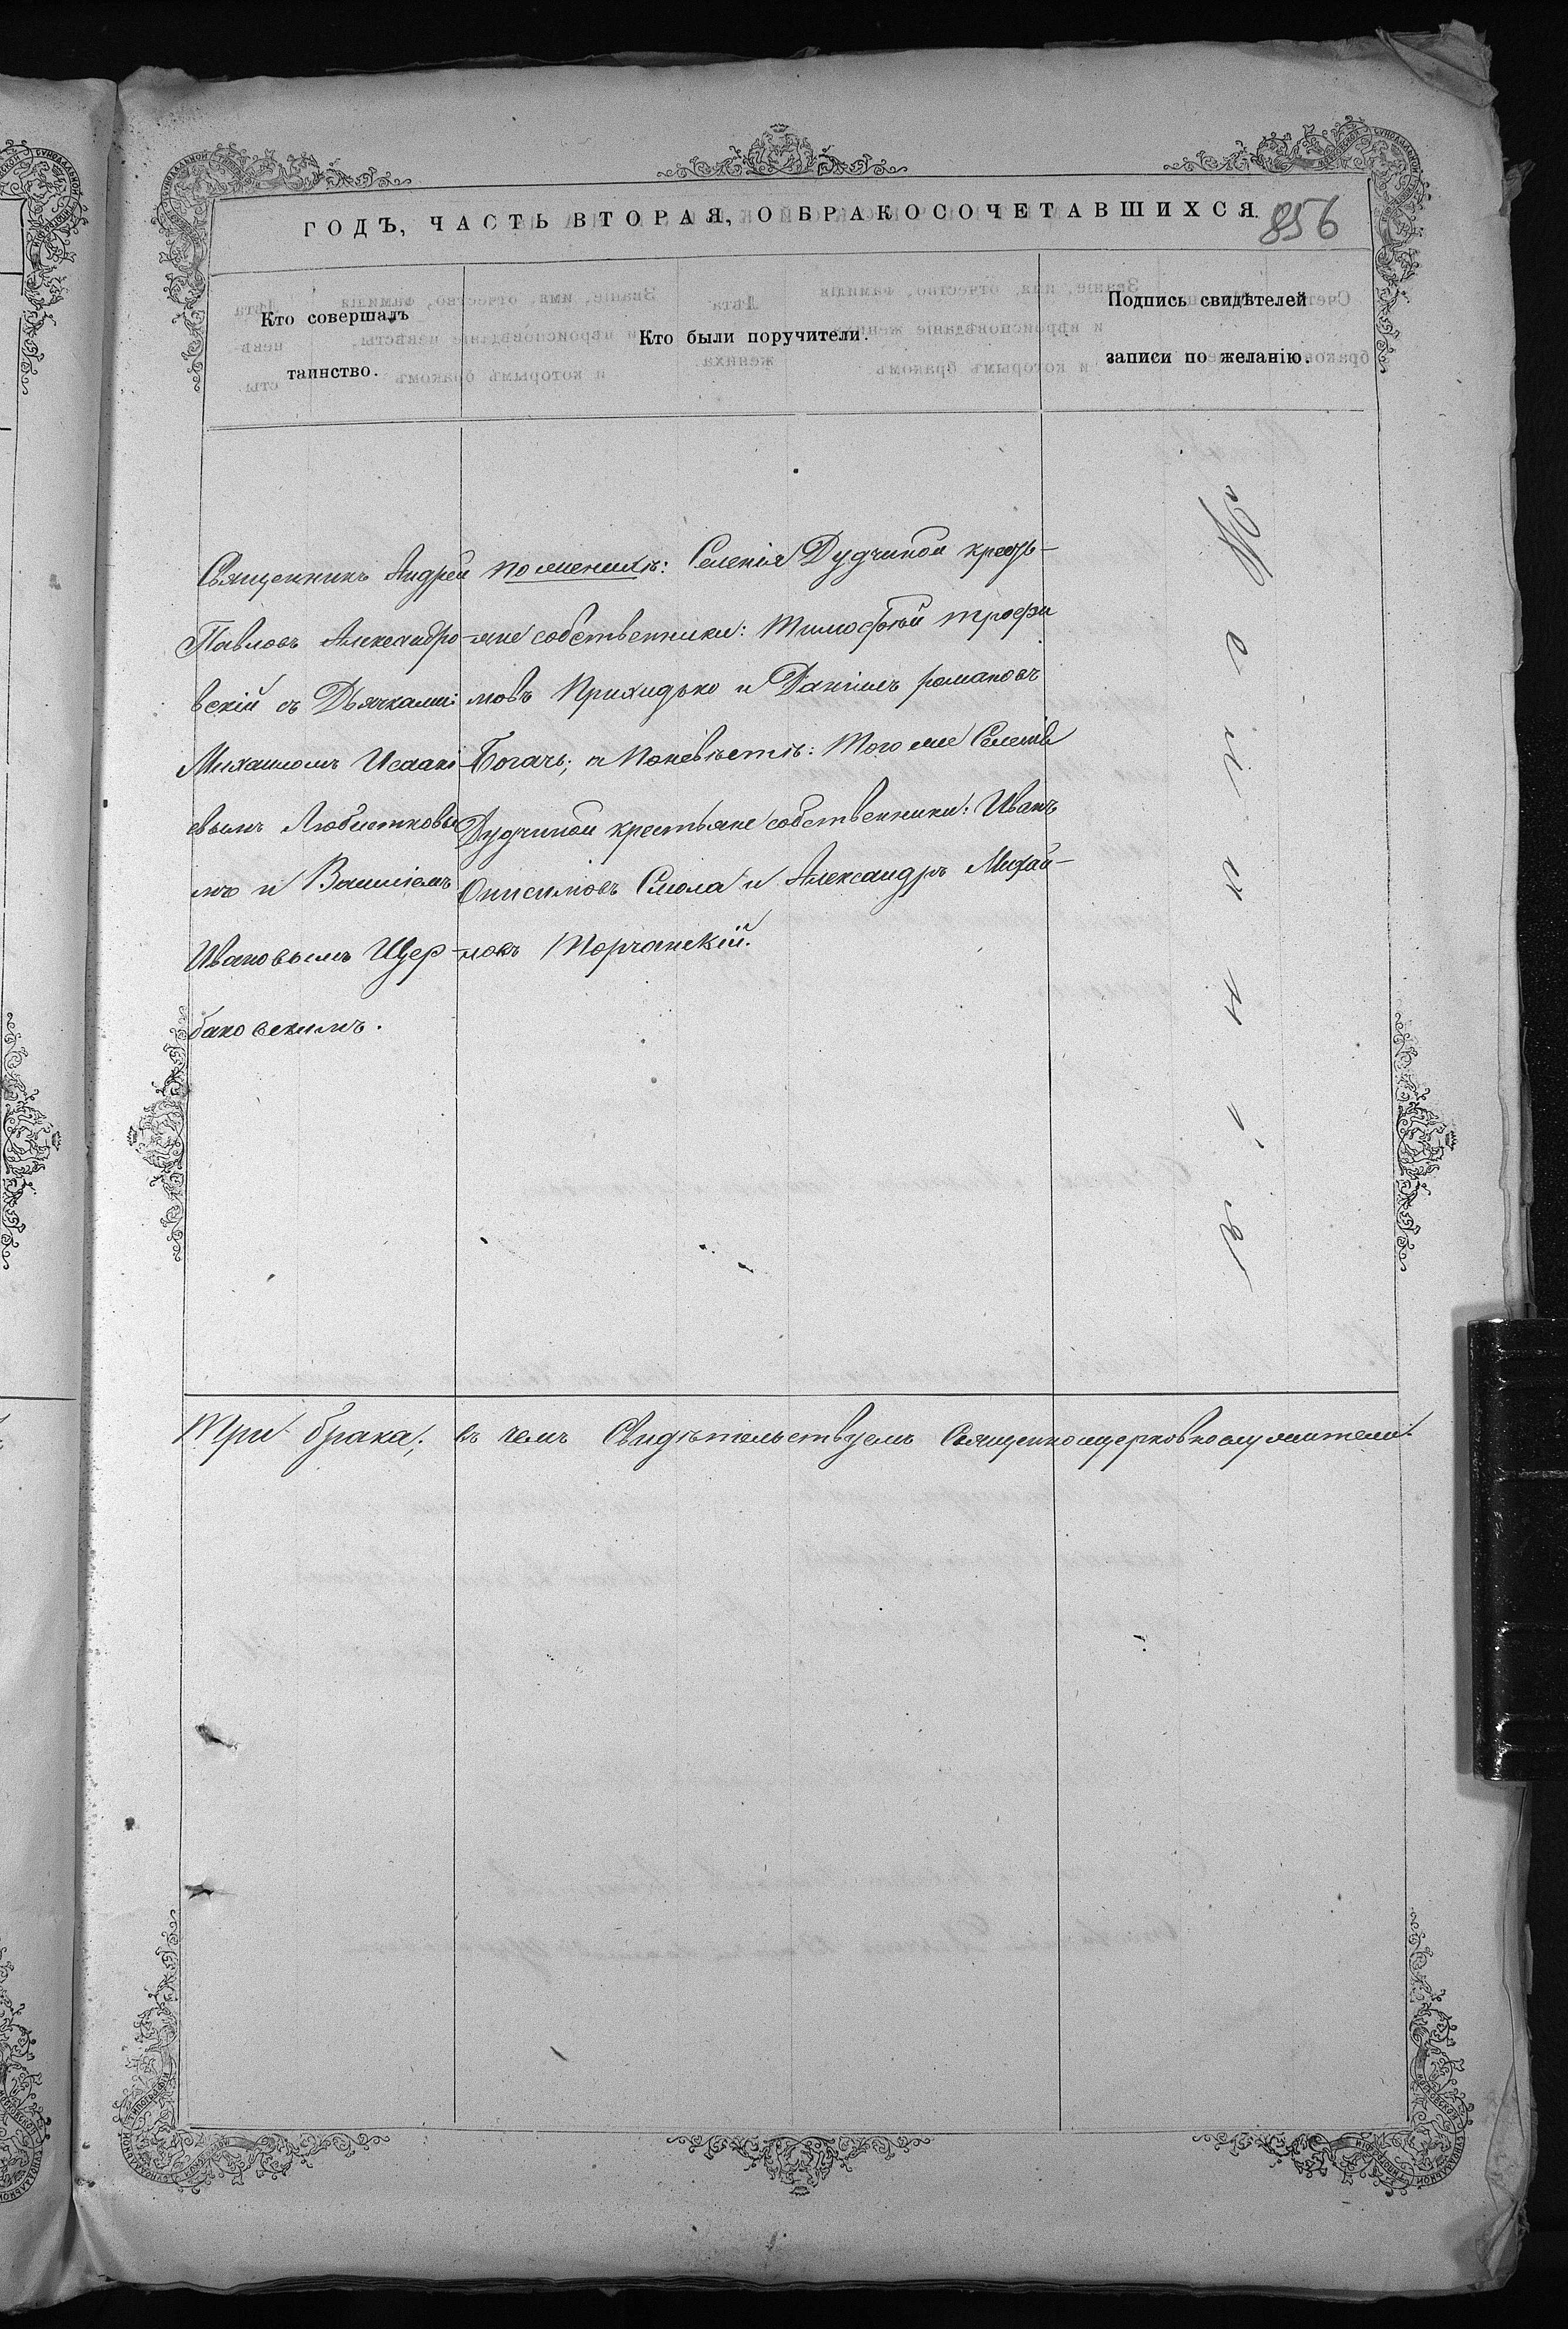 ГОДЪ, ЧАСТЬ ВТОРАЯ, О БРАКОСОЧЕТАВШИХСЯ.
856
Кто совершалъ
таинство.
Кто были поручители.
Подпись свидѣтелей
записи по желанію.
Священникъ Андрей
Павловъ Александро-
вскій съ Дьячками:
Михаиломъ Исааки
евымъ Любистковы
мъ и Василіемъ
Ивановымъ Щер-
баковскимъ.
по женихѣ: Селенія Дудчиной кресть-
яне собственники: Тимофѣй Трофи
мовъ Прихидько и Даніилъ Романовъ
Богачъ; и по невѣстѣ: Того же Селенія
Дудчиной крестьяне собственники: Иванъ
Онисимовъ Смола и Александръ Михай-
ловъ Торчанскій.
Три брака; въ чемъ Свидѣтельствуемъ Священноцерковнослужители: